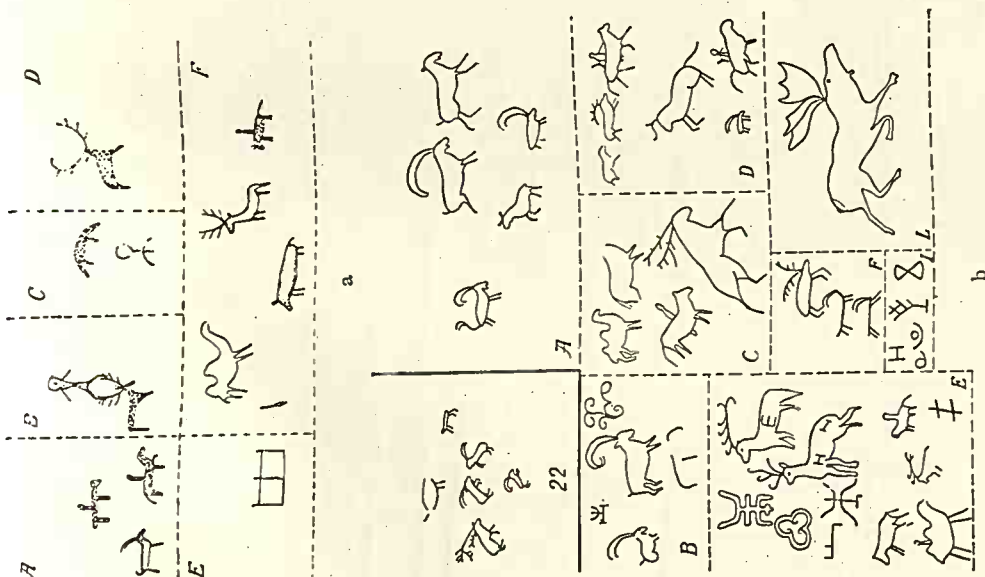 A
E
C
D
E
F
a
22
A
B
C
D
E
F
L
b